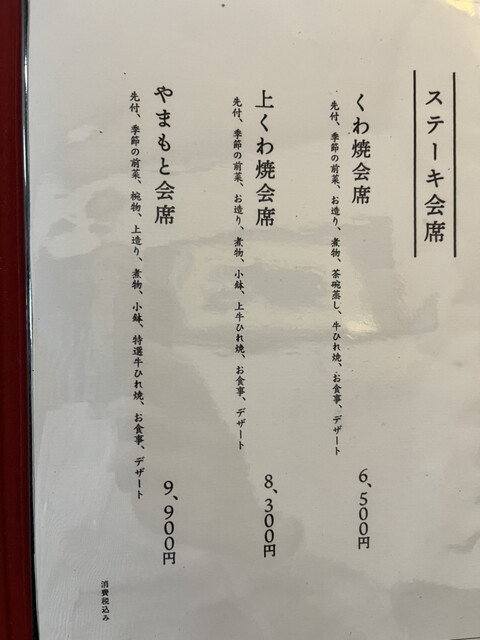 ステーキ会席
くわ焼会席
先付、季節の前菜、お造り、煮物、茶碗蒸し、牛ひれ焼、お食事、デザート
6、500円
上くわ焼会席
先付、季節の前菜、お造り、煮物、小鉢、上牛ひれ焼、お食事、デザート
8、300円
やまもと会席
先付、季節の前菜、椀物、上造り、煮物、小鉢、特選牛ひれ焼、お食事、デザート
9、900円
消費税込み